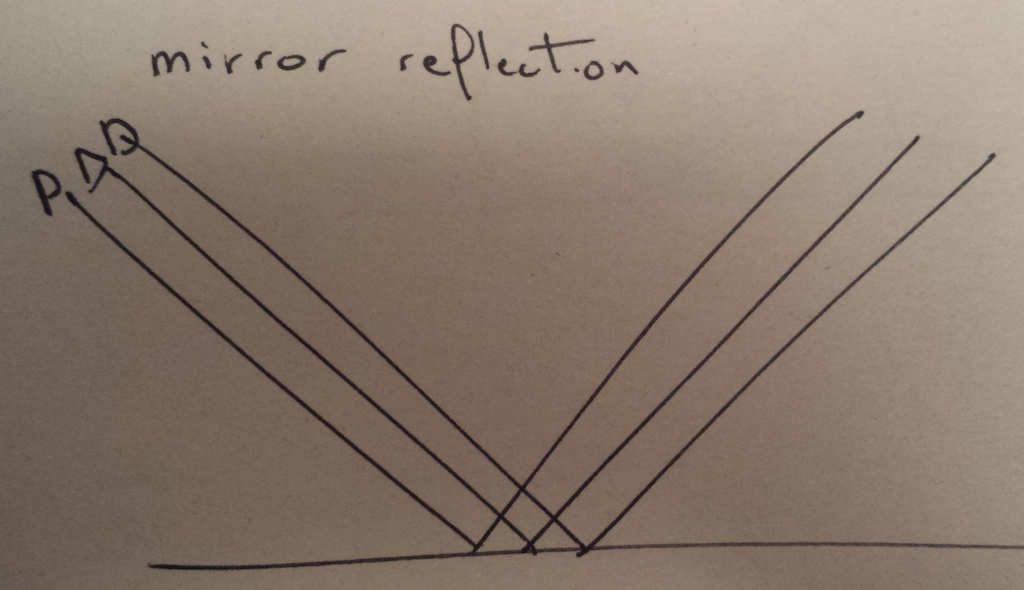 mirror reflection
P